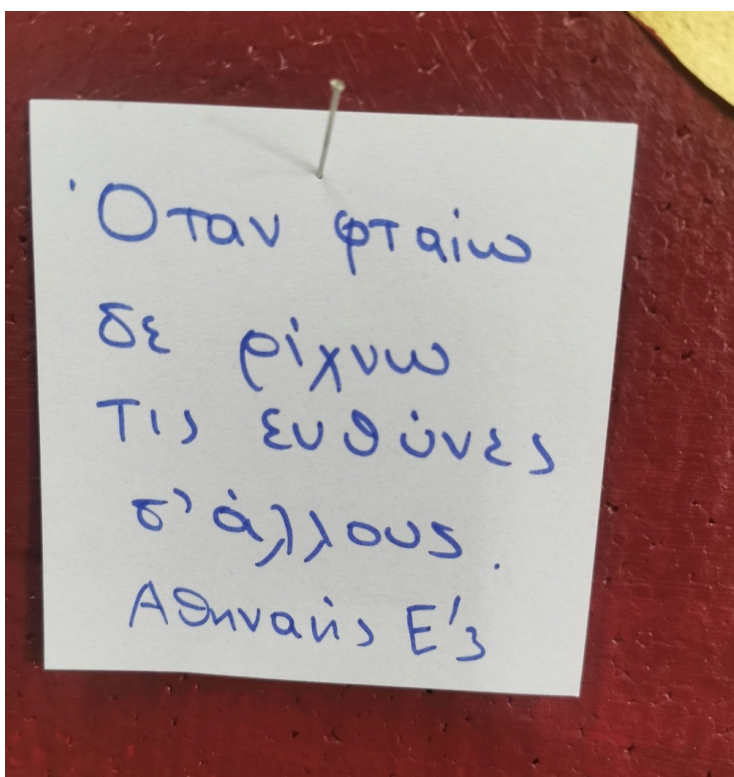 Όταν φταίω
δε ρίχνω
τις ευθύνες
σ' άλλους.
Αθηναής Ε'3